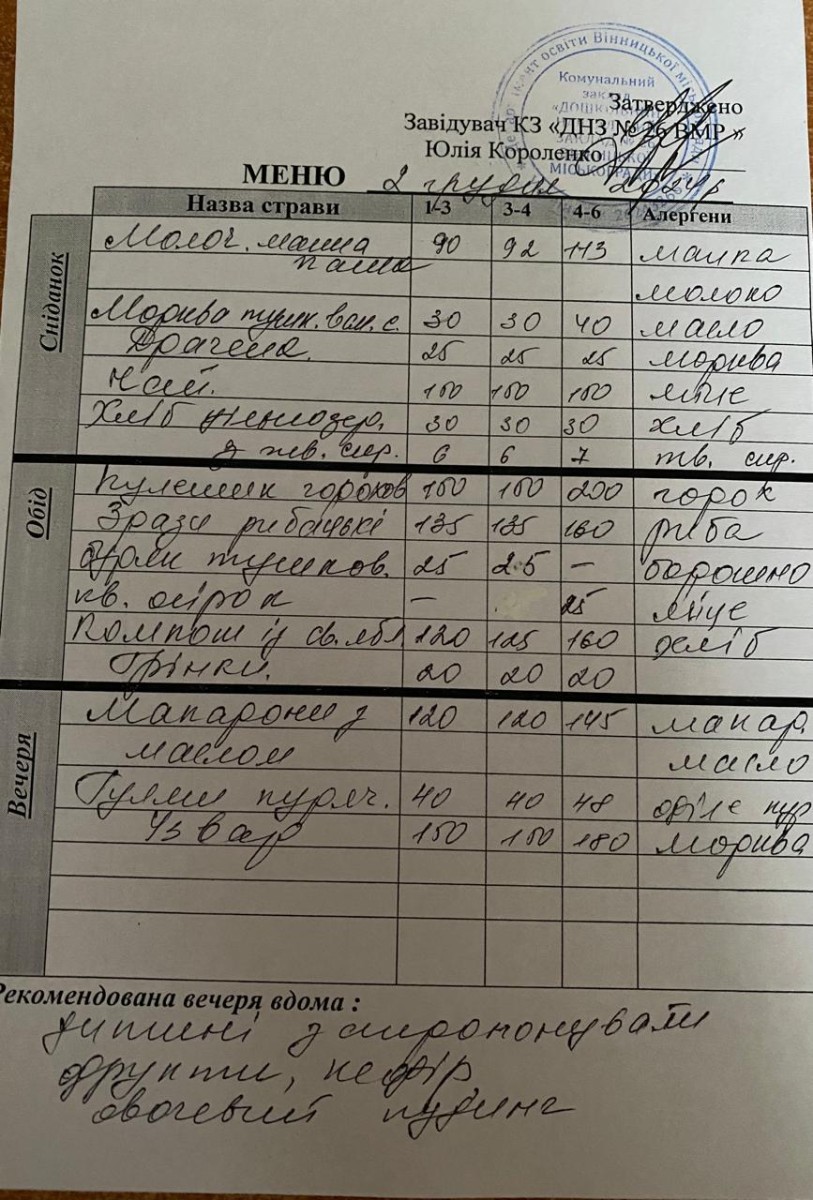 Комунальний
Затверджено
Завідувач КЗ «ДНЗ № 26 ВМР »
Юлія Короленко
МЕНЮ 2 грудня 2024р
Назва страви 1-3 3-4 4-6 Алергени
Сніданок
Молоч. манна 90 92 113 манка
каша молоко
Морква туш. 30 30 40 масло
Драчена. 25 25 25 морква
Чай. 150 150 150 яйце
Хліб цільнозер. 30 30 30 хліб
з тв. сир. 6 6 7 тв. сир.
Обід
Кулешик горохов 150 150 200 горох
Зрази рибацькі 135 135 160 риба
тушков. 25 25 – борошно
кв. огірок – 25 яйце
Компот із св. ябл 120 125 160 хліб
Грінки. 20 20 20
Вечеря
Макарони з 120 120 145 макар
маслом масло
Гуляш куряч. 40 40 48 філе кур
Узвар 150 150 180 морква
Рекомендована вечеря вдома :
дитині запропонувати
фрукти, кефір,
овочевий пудинг